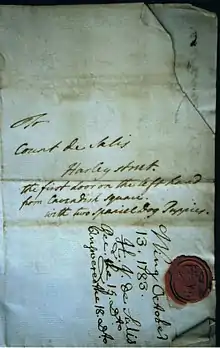 To
Count de Salis
Harley street
the first door on the left hand
from Cavendish Square
with two Spaniel Dog Puppies.
October
13. 1783.
de Salis
Rec: the 17. Do
Answered the 18. Do